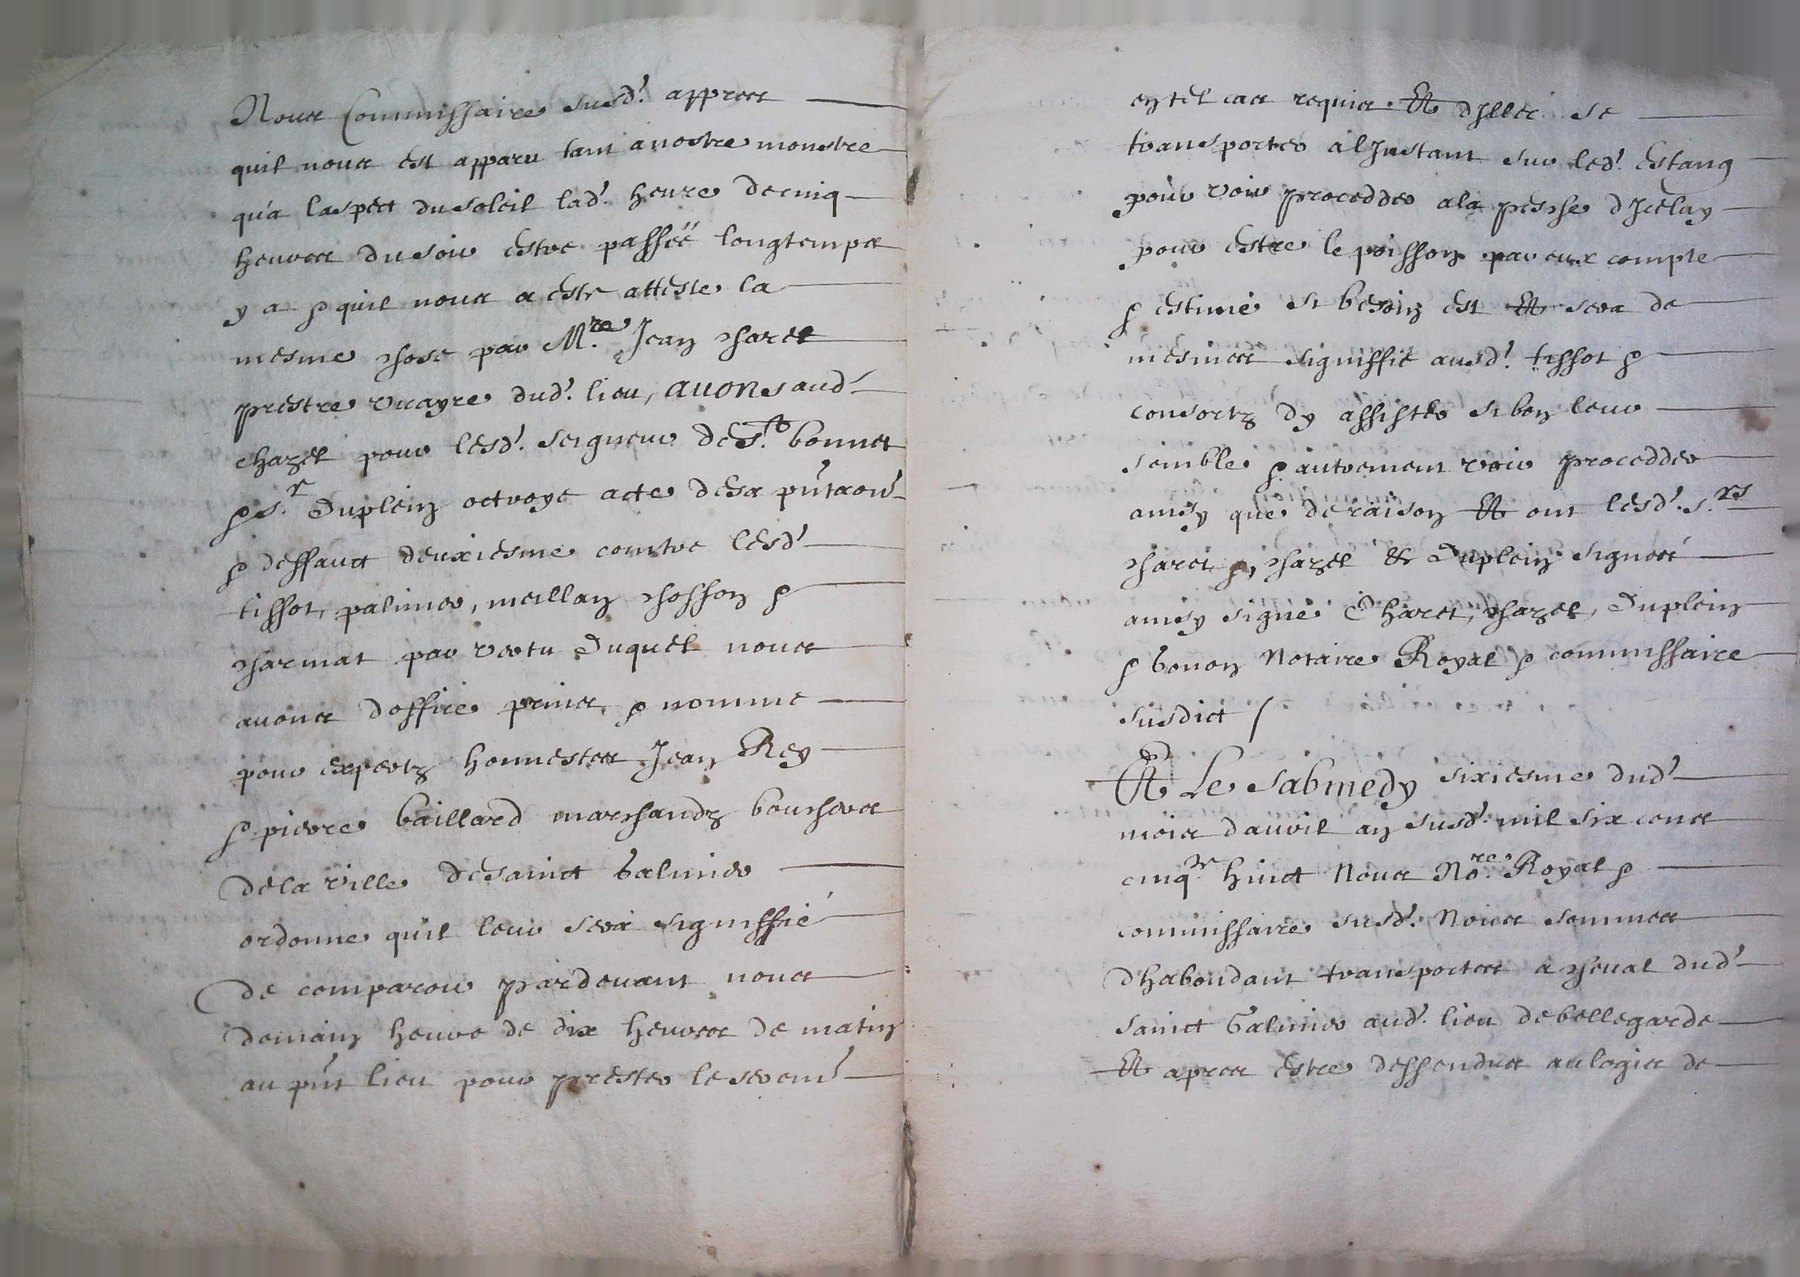 Nous Commissaire susd.t appres
quil nous est apparu tant a nostre monstre
qu'a laspect du soleil lad.t heure de cinq
heures du soir estre passéé longtemps
y a & quil nous a esté atteste la
mesme chose par M.re Jean Charet
prestre vicayre dud.t lieu, avons aud.t
Chazel pour lesd.t seigneur de s.t bonnet
& s.r Duplein octroye acte de sa p̃ntaon̄
& deffaut deuxiesme contre lesd.t
tissot, palimer, meillan chosson &
charmat par vertu duquel nous
avons d'office prins, & nomme
pour expertz honnestes Jean Rey
& pierre baillard marchandz bouchers
de la ville de sainct Galmier
ordonne quil leur sera signiffié
de comparoir pardevant nous
demain heure de dix heures de matin
au p̃nt lieu pour prester le serem.t
en tel cas requis Et dillec se
transporter a lJnstant sur led.t estang
pour voir procedder a la pesche dJcelay
pour estre le poisson par eux compte
& estimé si besoin est Et sera de
mesmes signiffie ausd.t tissot &
consortz dy assister si bon leur
semble & autrement voir procedder
ainsy que de raison Et ont lesd.t s.rs
charet, &, chazel & Duplein signés
ainsy signé Charet, chazel, Duplein
& bonon Notaire Royal & commissaire
susdict /
Et Le Sabmedy sixiesme dud.t
mois d'avril an susd.t mil six cens
cinq.te huict Nous No.re Royal &
commissaire susd.t Nous sommes
d'habondant transportes a cheval dud.t
sainct Galmier aud.t lieu de bellegarde
Et apres estre dessendus au logis de